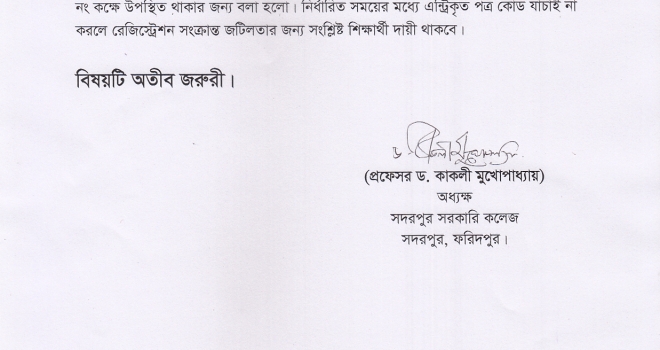 নং কক্ষে উপস্থিত থাকার জন্য বলা হলো। নির্ধারিত সময়ের মধ্যে এন্ট্রিকৃত পত্র কোড যাচাই না
করলে রেজিস্ট্রেশন সংক্রান্ত জটিলতার জন্য সংশ্লিষ্ট শিক্ষার্থী দায়ী থাকবে।
বিষয়টি অতীব জরুরী।
(প্রফেসর ড. কাকলী মুখোপাধ্যায়)
অধ্যক্ষ
সদরপুর সরকারি কলেজ
সদরপুর, ফরিদপুর।